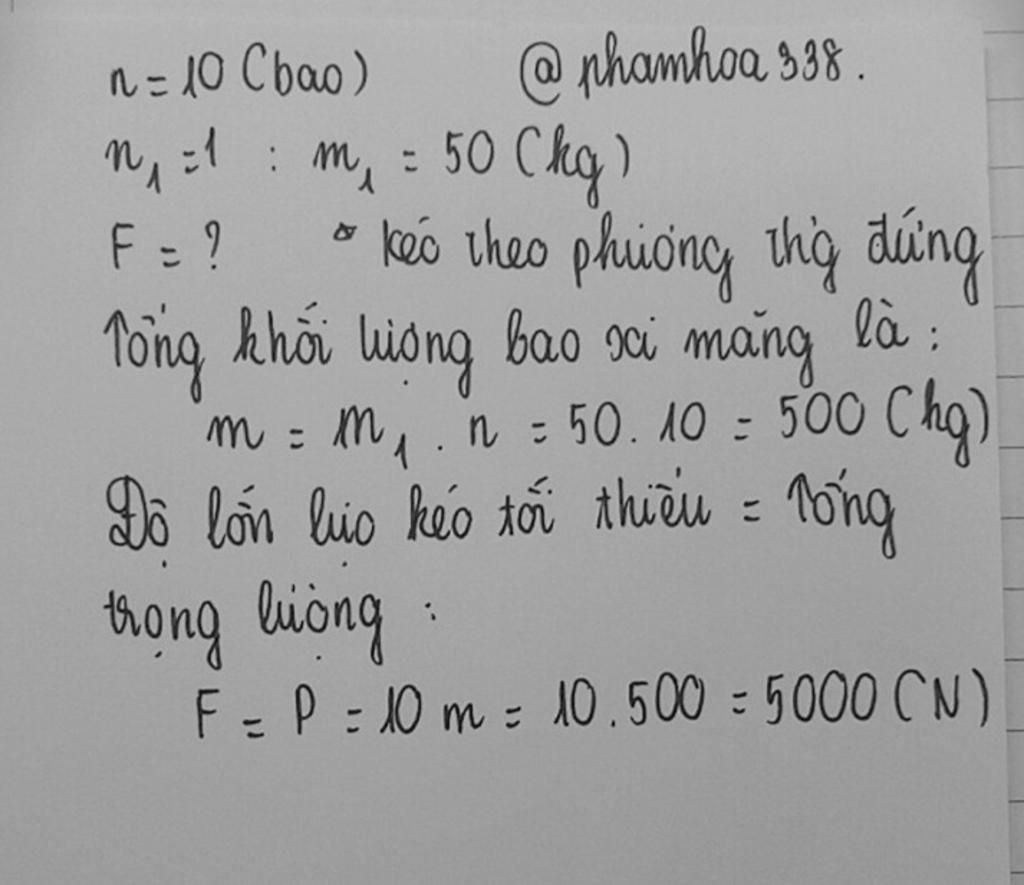 n = 10 (bao) @phamhoa338.
n₁ = 1 : m₁ = 50 (kg)
F = ? * kéo theo phương thg đứng
Tổng khối lượng bao xi măng là :
m = m₁ . n = 50 . 10 = 500 (kg)
Độ lớn lực kéo tối thiểu = Tổng
trọng lượng :
F = P = 10 m = 10 . 500 = 5000 (N)